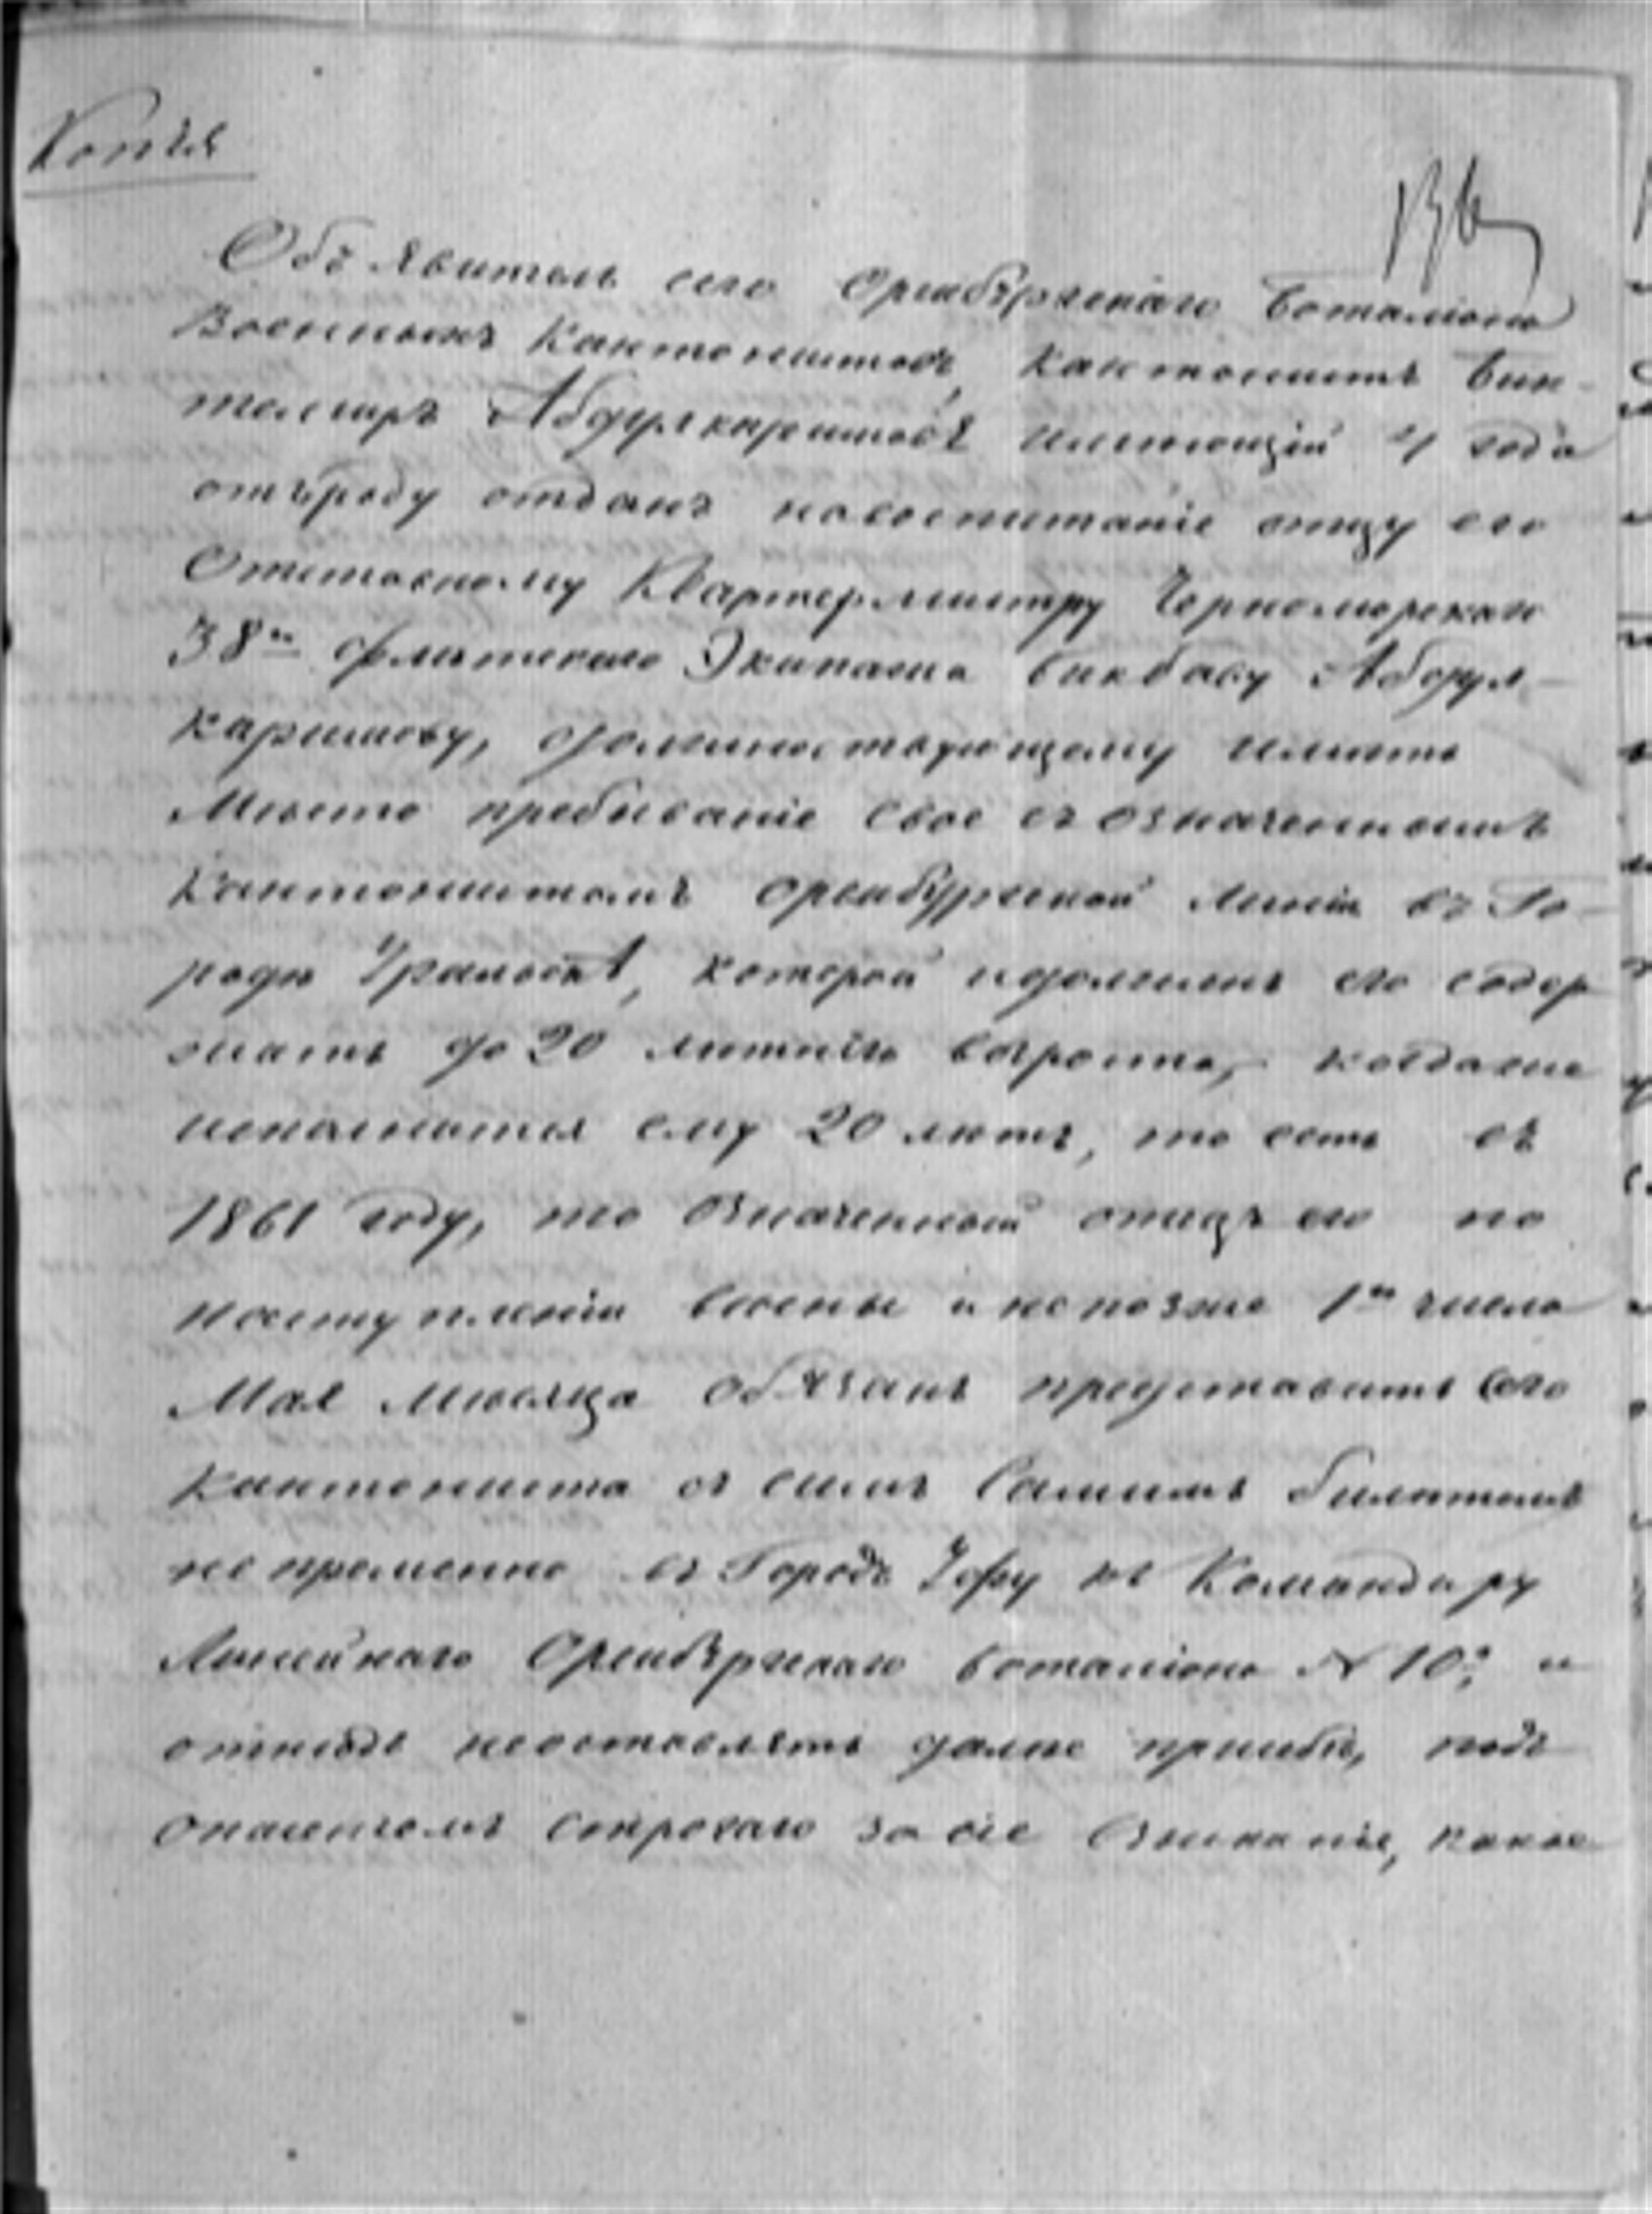 Копія
Объявитель сего Оренбургскаго Баталіона
Военныхъ Кантонистовъ, кантонистъ Бик-
темиръ Абдулкаримовъ имеющій 4 года
отъроду отданъ навоспитаніе отцу его
Отставному Квартермистру Черноморскаго
38го флотскаго Экипажа Бикбаву Абдул-
каримову, долженствующему иметь
Место пребываніе свое съ означеннымъ
Кантонистомъ Оренбургской линіи въ Го-
роде Уральскѣ, которой идолженъ его содер
жать до 20 летняго возроста, когдаже
исполнится ему 20 летъ, то есть въ
1861 году, то Означенный отецъ его по
наступленіи весны и непозже 1го числа
Мая Месяца обязанъ представить сего
Кантониста съ симъ Самимъ билетомъ
не пременно въ Городъ Уфу къ Командиру
Линейнаго Оренбургскаго баталіона № 10; и
отнюдь неоставлять далее присебе, подъ
опасеніемъ строгаго за сіе взысканіе, какое